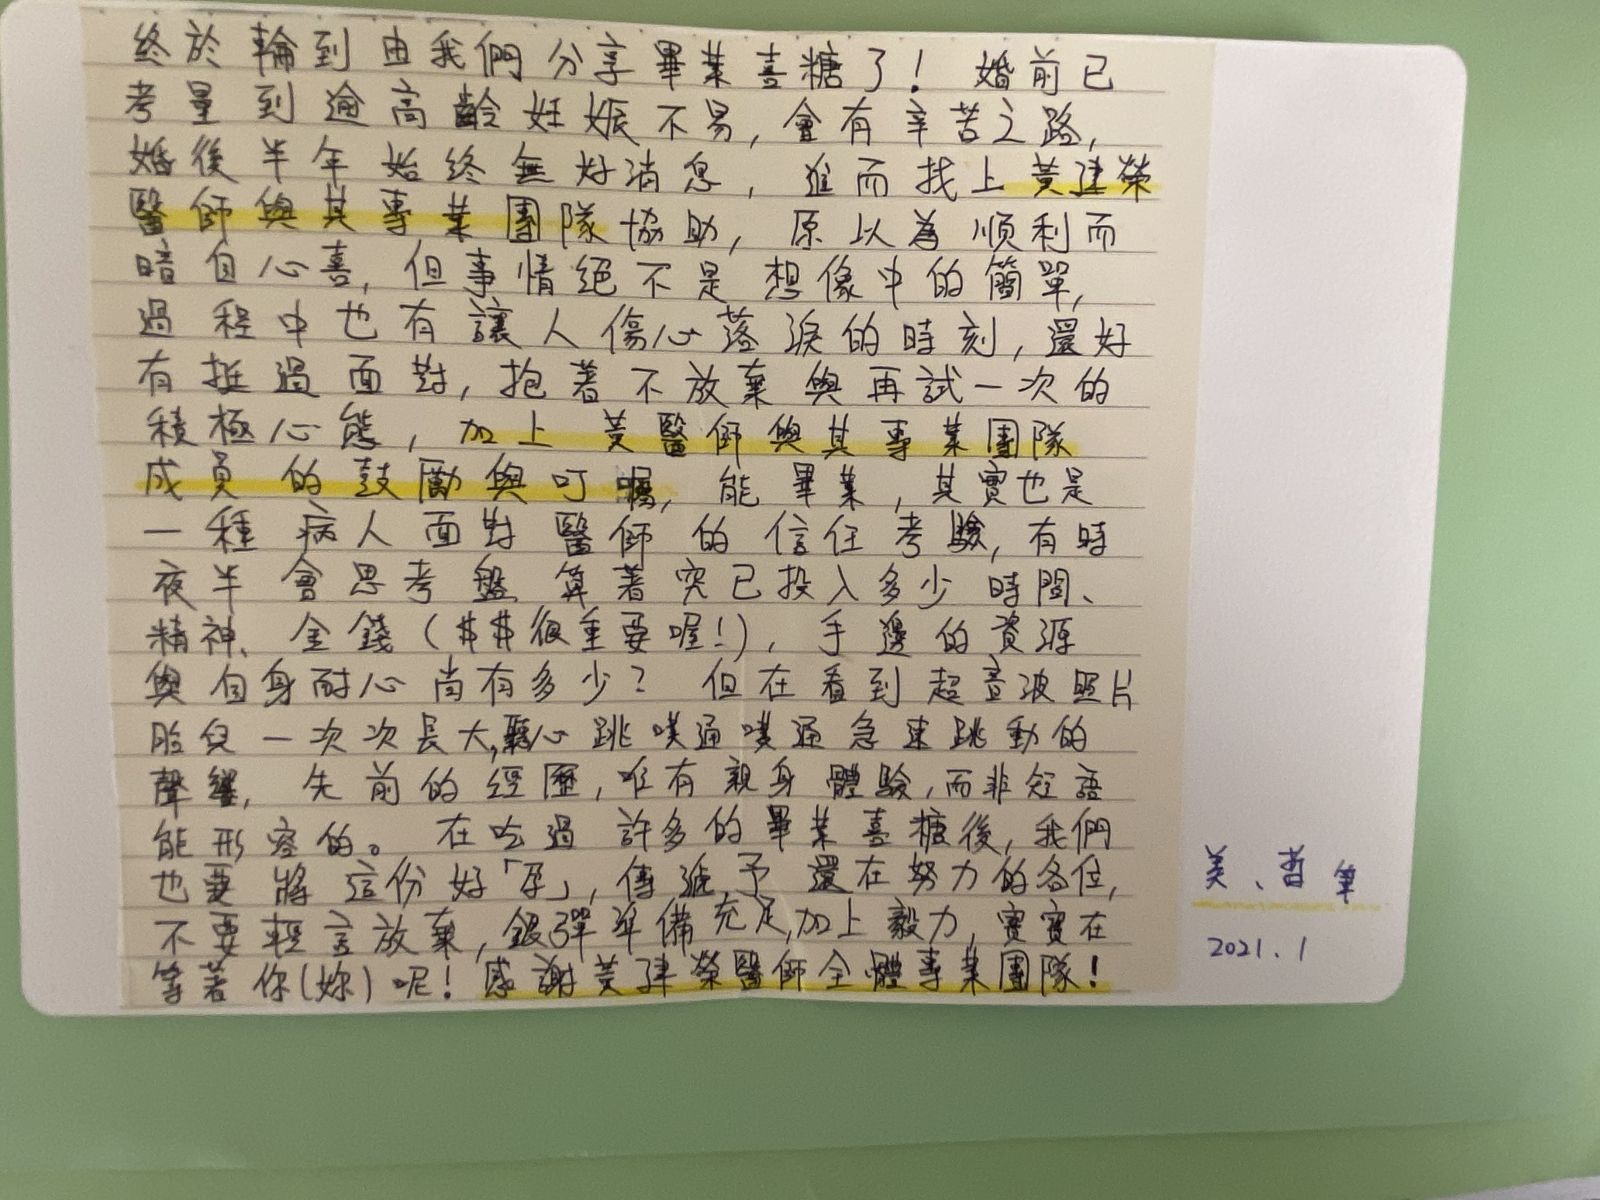 終於輪到由我們分享畢業喜糖了! 婚前已
考量到逾高齡妊娠不易,會有辛苦之路,
婚後半年始終無好消息,進而找上黃建榮
醫師與其專業團隊協助,原以為順利而
暗自心喜,但事情絕不是想像中的簡單,
過程中也有讓人傷心落淚的時刻,還好
有挺過面對,抱著不放棄與再試一次的
積極心態,加上黃醫師與其專業團隊
成員的鼓勵與叮囑,能畢業,其實也是
一種病人面對醫師的信任考驗,有時
夜半會思考盤算著究已投入多少時間、
精神、金錢($$很重要喔!),手邊的資源
與自身耐心尚有多少? 但在看到超音波照片
胎兒一次次長大,聽心跳噗通噗通急速跳動的
聲響,先前的經歷,唯有親身體驗,而非短語
能形容的。在吃過許多的畢業喜糖後,我們
也要將這份好「孕」,傳遞予還在努力的各位,
不要輕言放棄,銀彈準備充足,加上毅力,寶寶在
等著你(妳)呢! 感謝黃建榮醫師全體專業團隊!
美、哲 筆
2021.1